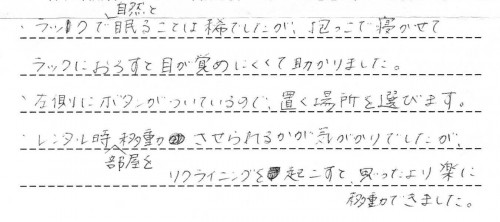 ・ラックで自然と眠ることは稀でしたが、抱っこで寝かせて
ラックにおろすと目が覚めにくくて助かりました。
・左側にボタンがついているので、置く場所を選びます。
・レンタル時、部屋を移動させられるかが気がかりでしたが、
リクライニングを起こすと、思ったより楽に
移動できました。